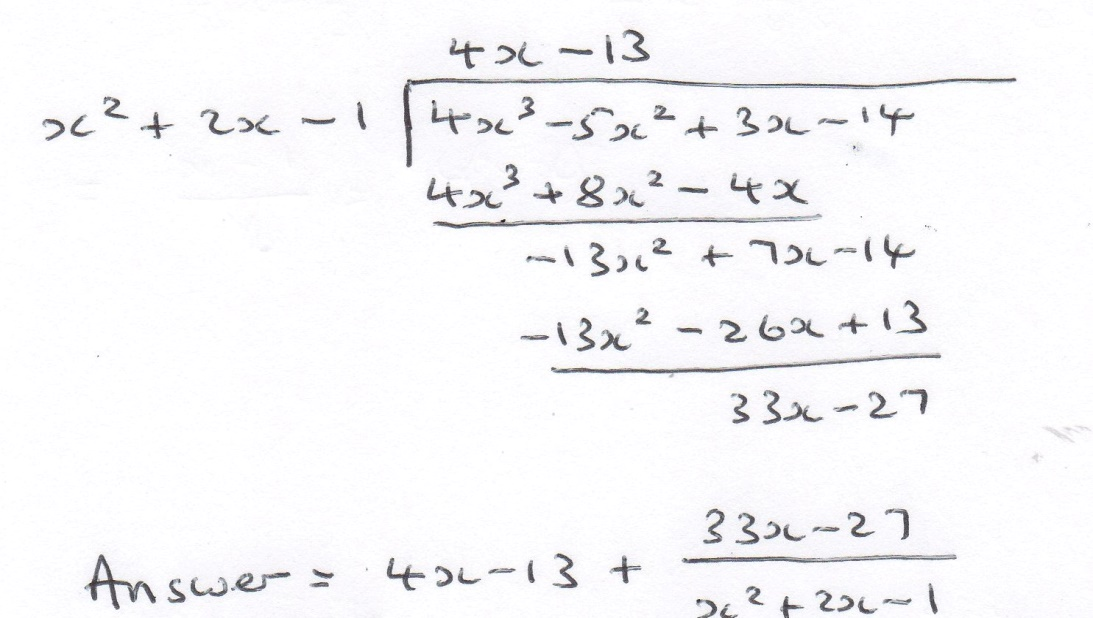 4x - 13
x² + 2x - 1 4x³ - 5x² + 3x - 14
4x³ + 8x² - 4x
-13x² + 7x - 14
-13x² - 26x + 13
33x - 27
33x - 27
Answer = 4x - 13 +
x² + 2x - 1